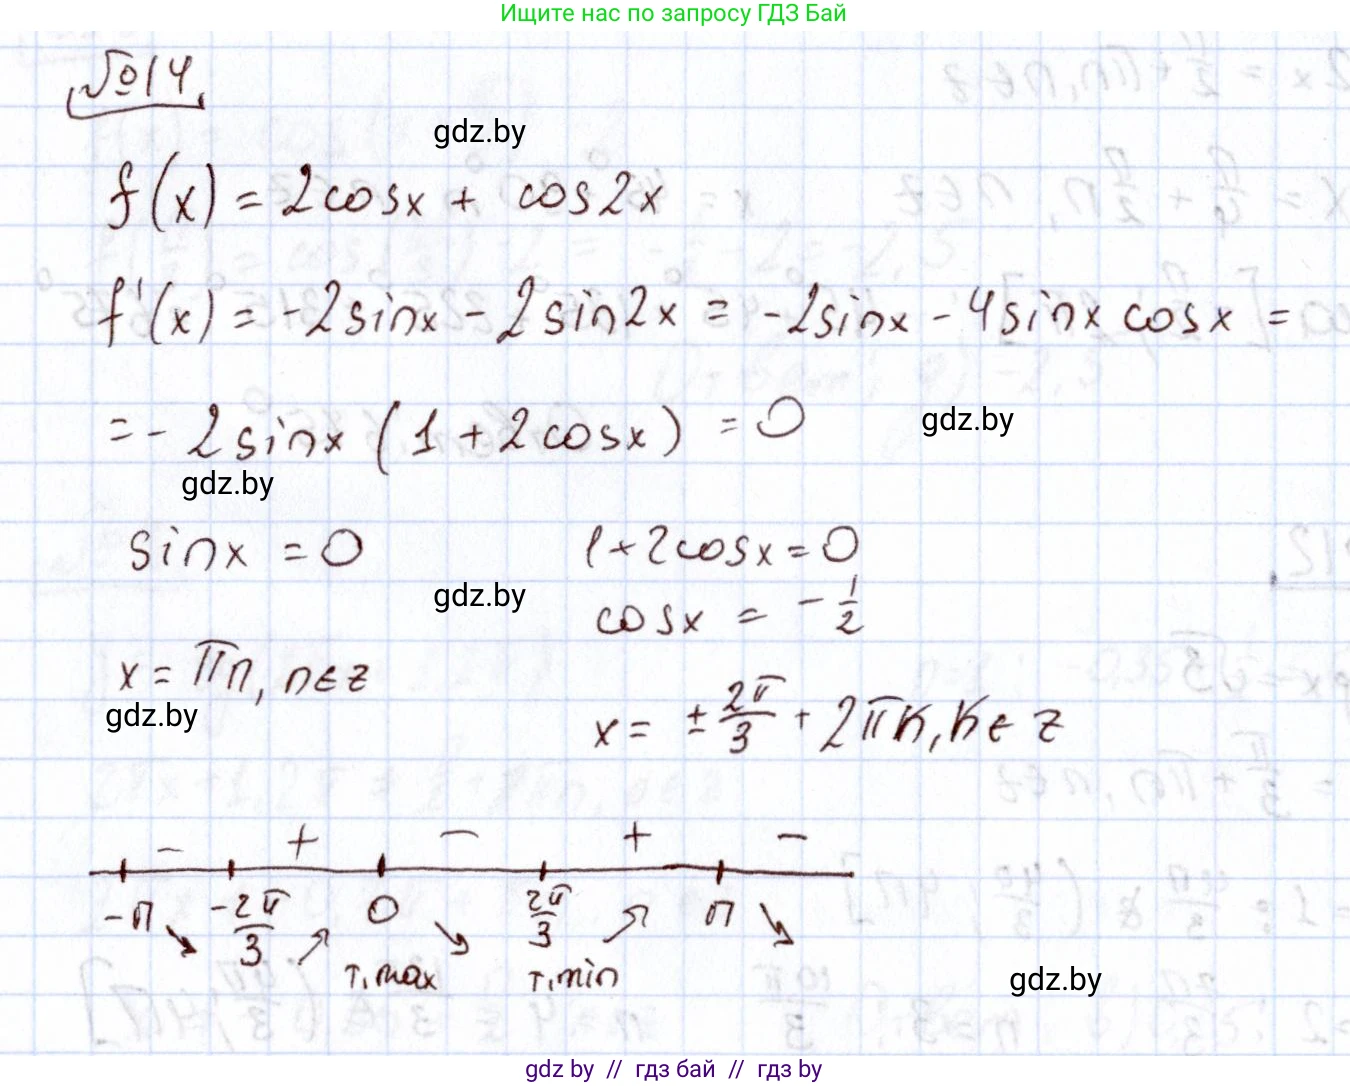 Ищите нас по запросу ГДЗ Бай
№14
gdz.by
f(x) = 2cosx + cos2x
f'(x) = -2sinx - 2sin2x = -2sinx - 4sinx cosx =
= -2sinx (1 + 2cosx) = 0
gdz.by
gdz.by
sinx = 0
1 + 2cosx = 0
gdz.by
cosx = -1/2
x = πn, n∈z
gdz.by
x = ± 2π/3 + 2πk, k∈z
- + - + -
-π -2π/3 0 2π/3 π
↘ ↗ ↘ ↗ ↘
т. max т. min
gdz.by
gdz by // гдз бай // гдз by